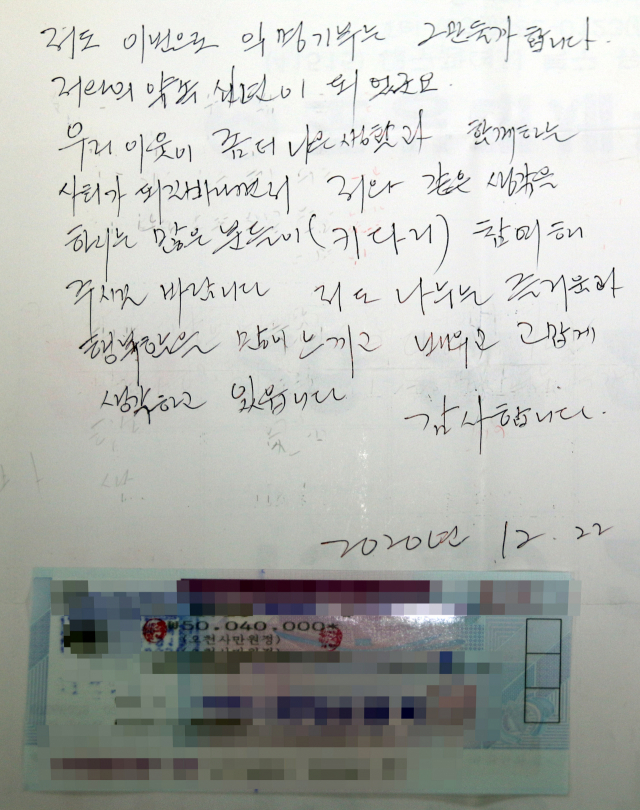 저도 이번으로 익명기부는 그만둘까 합니다.
저와의 약속 십년이 되었군요.
우리 이웃이 좀더 나은 생활과 함께하는
사회가 되기바라면서 저와 같은 생각을
하시는 많은 분들이 (키다리) 참여해
주시길 바랍니다 저도 나누는 즐거움과
행복함을 많이 느끼고 배우고 고맙게
생각하고 있읍니다
감사합니다.
2020년 12. 22
₩50.040.000*